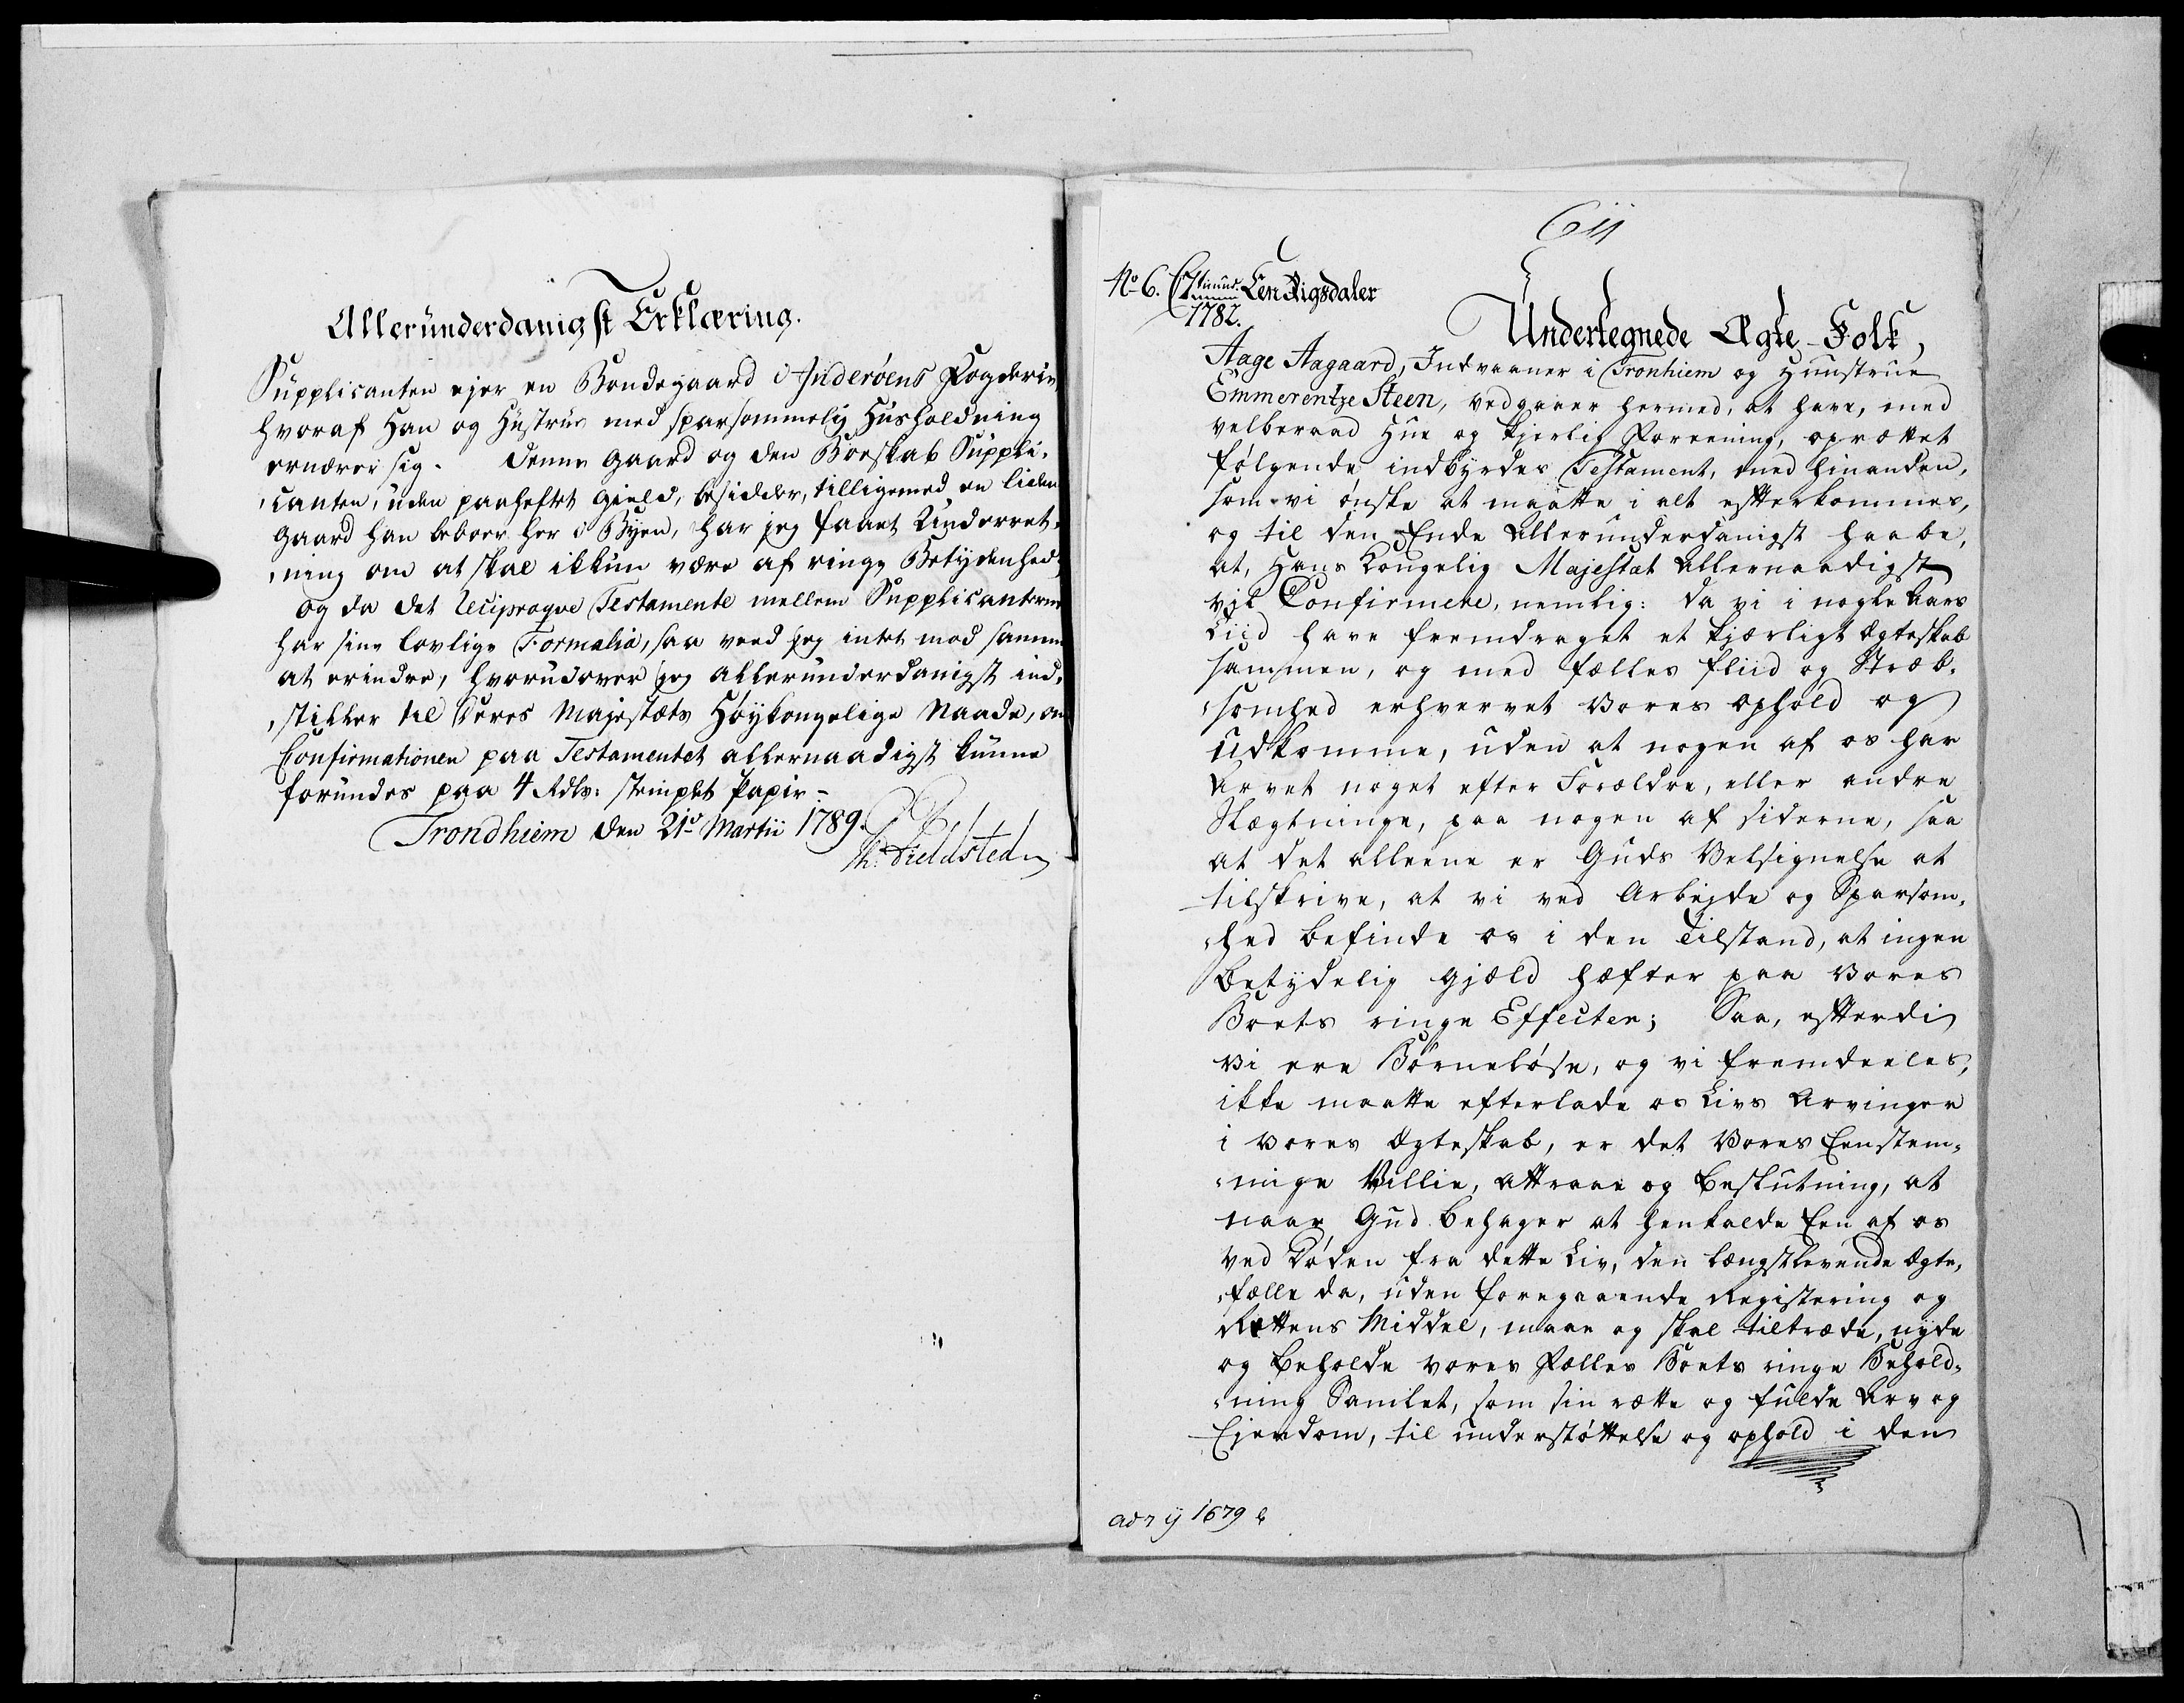 Alleründerdanigst Erklæring.
Supplicanten ejer en Bondegaard i Inderøens Fogderie
hvoraf Han og Hustrue med sparsommelig Huusholdning
ernærer sig. Denne Gaard og den Boeskab Suppli-
canten, uden paaheftet Gield, besidder, tilligemed en liden
Gaard han beboer her i Byen, har jeg faaet Underret-
ning om at skal ikkun være af ringe Betydenhed
og da det reciproqve Testamente mellem Supplicanterne
har sine lovlige Formalia, saa veed jeg intet mod samme
at erindre, hvorudover jeg allerunderdanigst ind-
stiller til Deres Majestæts Høykongelige Naade, om
Confirmationen paa Testamentet allernaadigst kunne
forundes paa 4 Rdlr: stemplet Papir.
Trondhiem den 21de Martii 1789.
Th. Fieldsted
611
No 6. Een Rigsdaler
1782.
Undertegnede Ægte-Folk,
Aage Aagaard, Indvaaner i Tronhiem og Huustrue
Emmerentze Steen, vedgaaer hermed, at have, med
velberaad Hue og kjerlig Foreening, oprættet
følgende indbyrdes Testament, med hinanden,
som vi ønske at maatte i alt efterkommes,
og til den Ende Allerunderdanigst haabe,
at, Hans Kongelig Majestæt Allernaadigst
vil Confirmere, nemlig: da vi i nogle Aars
Tiid have fremdraget et kjærligt Ægteskab
sammen, og med fælles fliid og Stræb-
somhed erhvervet Vores ophold og
udkomme, uden at nogen af os har
Arvet noget efter Forældre, eller andre
Slægtninge, paa nogen af siderne, saa
at det alleene er Guds Velsignelse at
tilskrive, at vi ved Arbejde og Sparsom-
hed befinde os i den Tilstand, at ingen
betydelig Gjæld hæfter paa Vores
Boets ringe Effecter; Saa, efterdi
Vi ere Børneløse, og vi fremdeeles,
ikke maatte efterlade os Livs Arvinger
i vores Ægteskab, er det Vores Eenstem-
mige Villie, Attraae og Beslutning, at
naar Gud behager at henkalde Een af os
ved Døden fra dette Liv, den længstlevende Ægte-
fælle da, uden foregaaende Registering og
Rettens Middel, maae og skal tiltræde, nyde
og beholde vores Fælles Boets ringe Behold-
ning Samlet, som sin rette og fulde Arv og
Ejendom, til understøttelse og ophold i den
1679